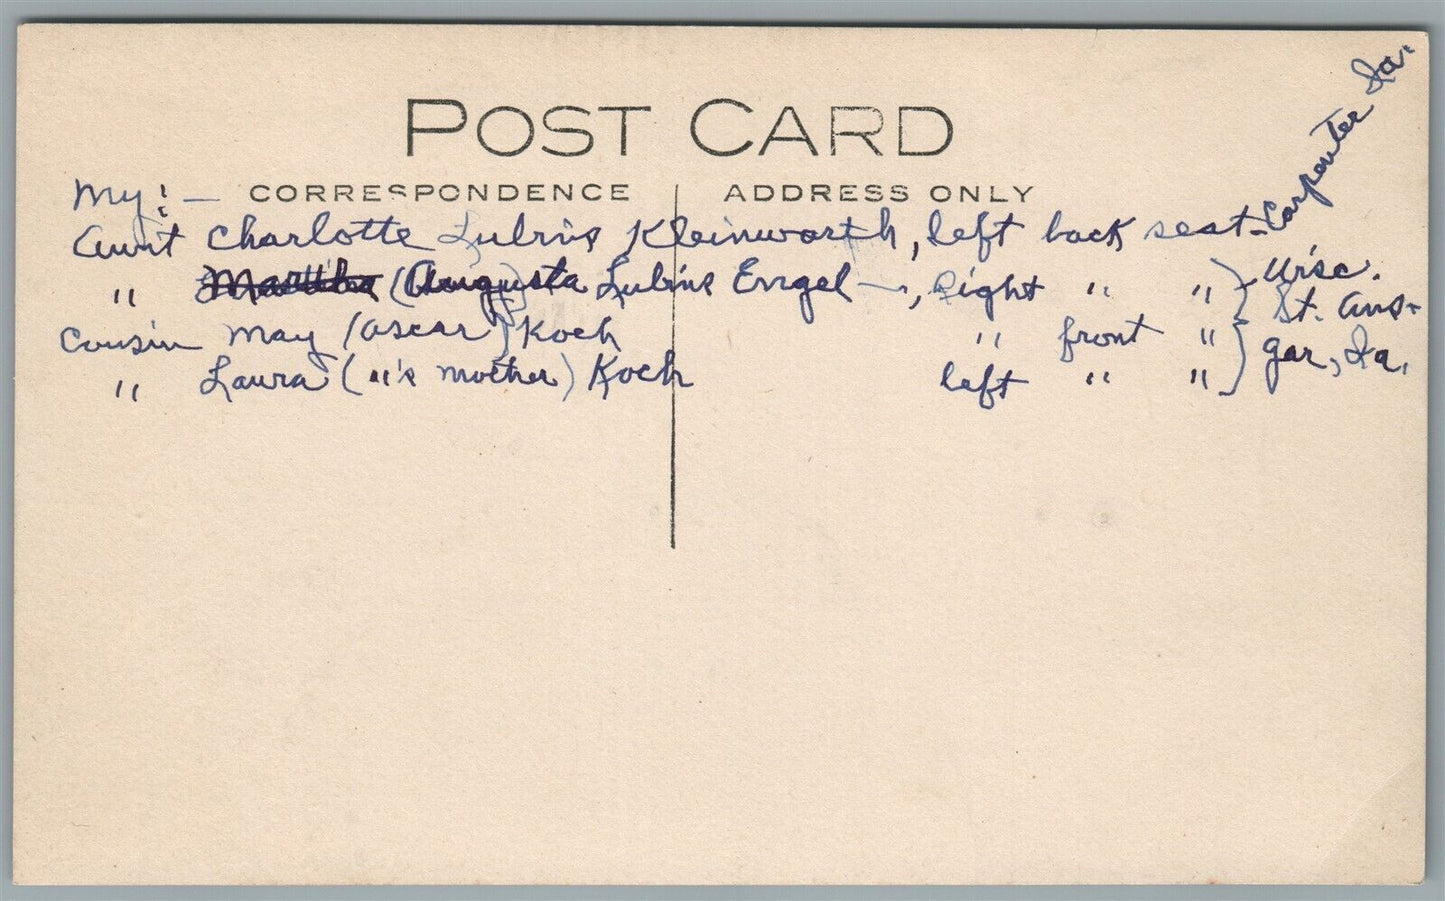 POST CARD
CORRESPONDENCE ADDRESS ONLY
My:—
Aunt Charlotte Lubins Kleinworth, left back seat - Carpenter Ia.
" (Augusta Lubins Engel —, right " " } Wisc.
Cousin May (Oscar) Koch " front " } St. Ans-
" Laura ( "'s mother) Koch left " " } gar, Ia.